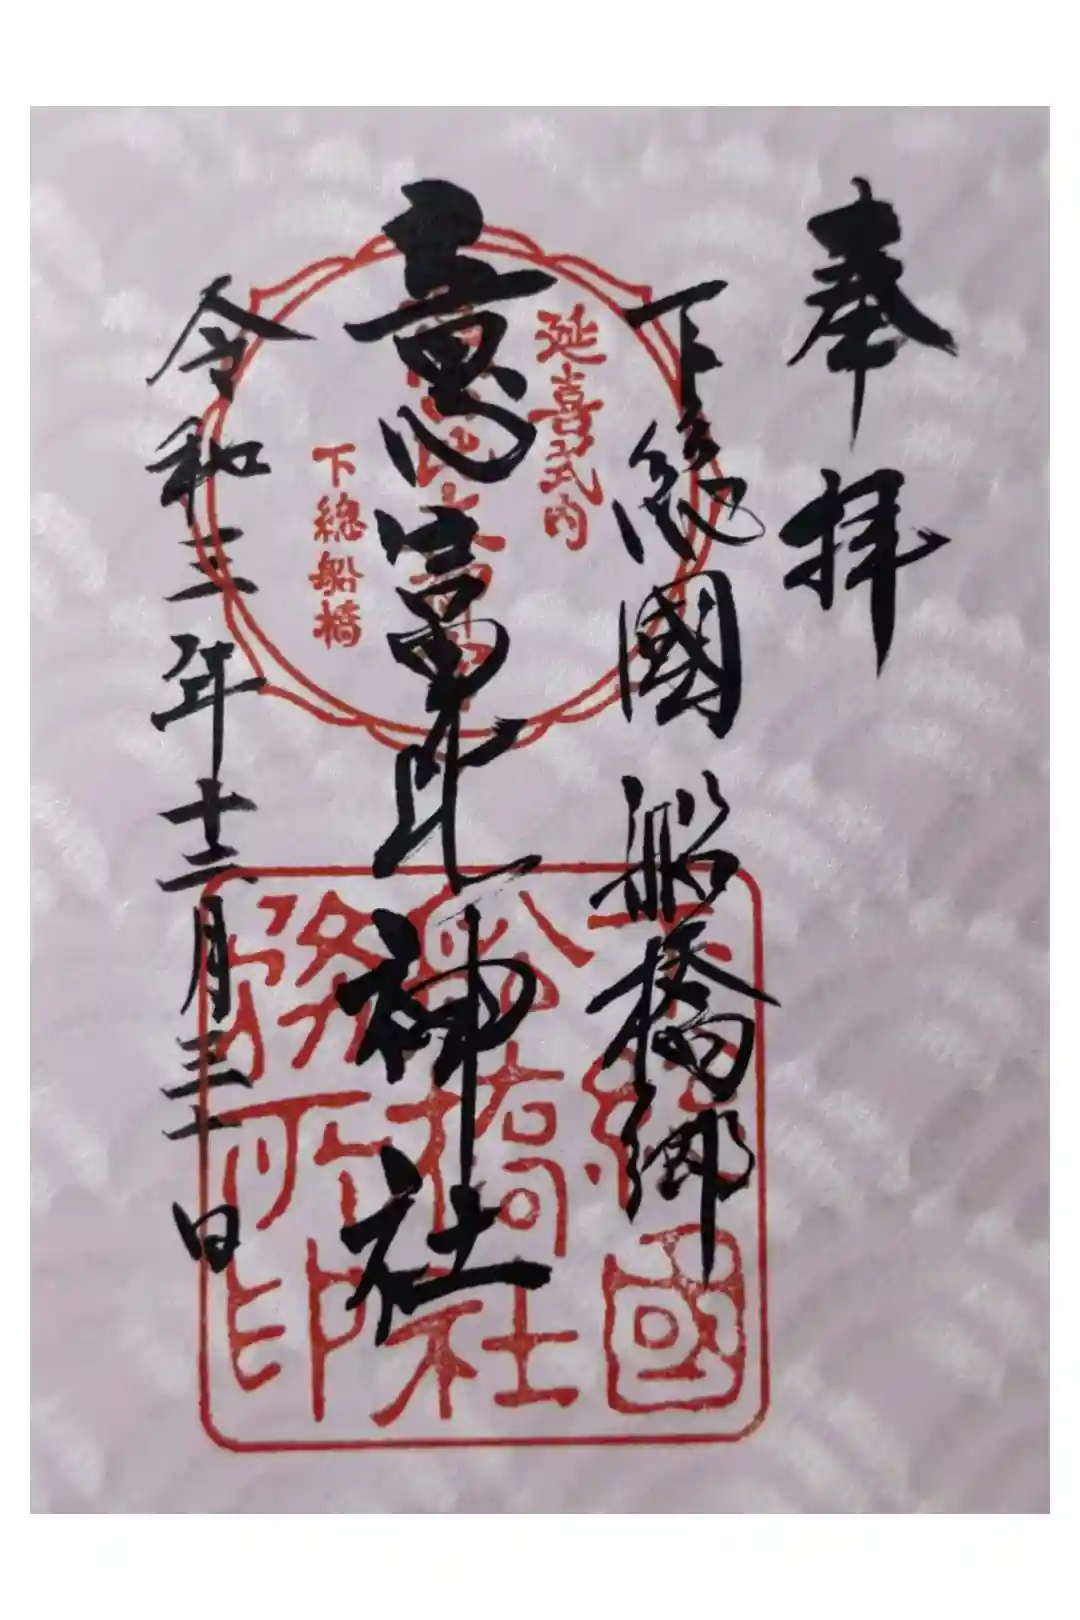 奉拝
下総國船橋郷
意富比神社
令和三年十二月三十日
延喜式内
意富比神社
下総船橋
下総國
船橋社
務所印